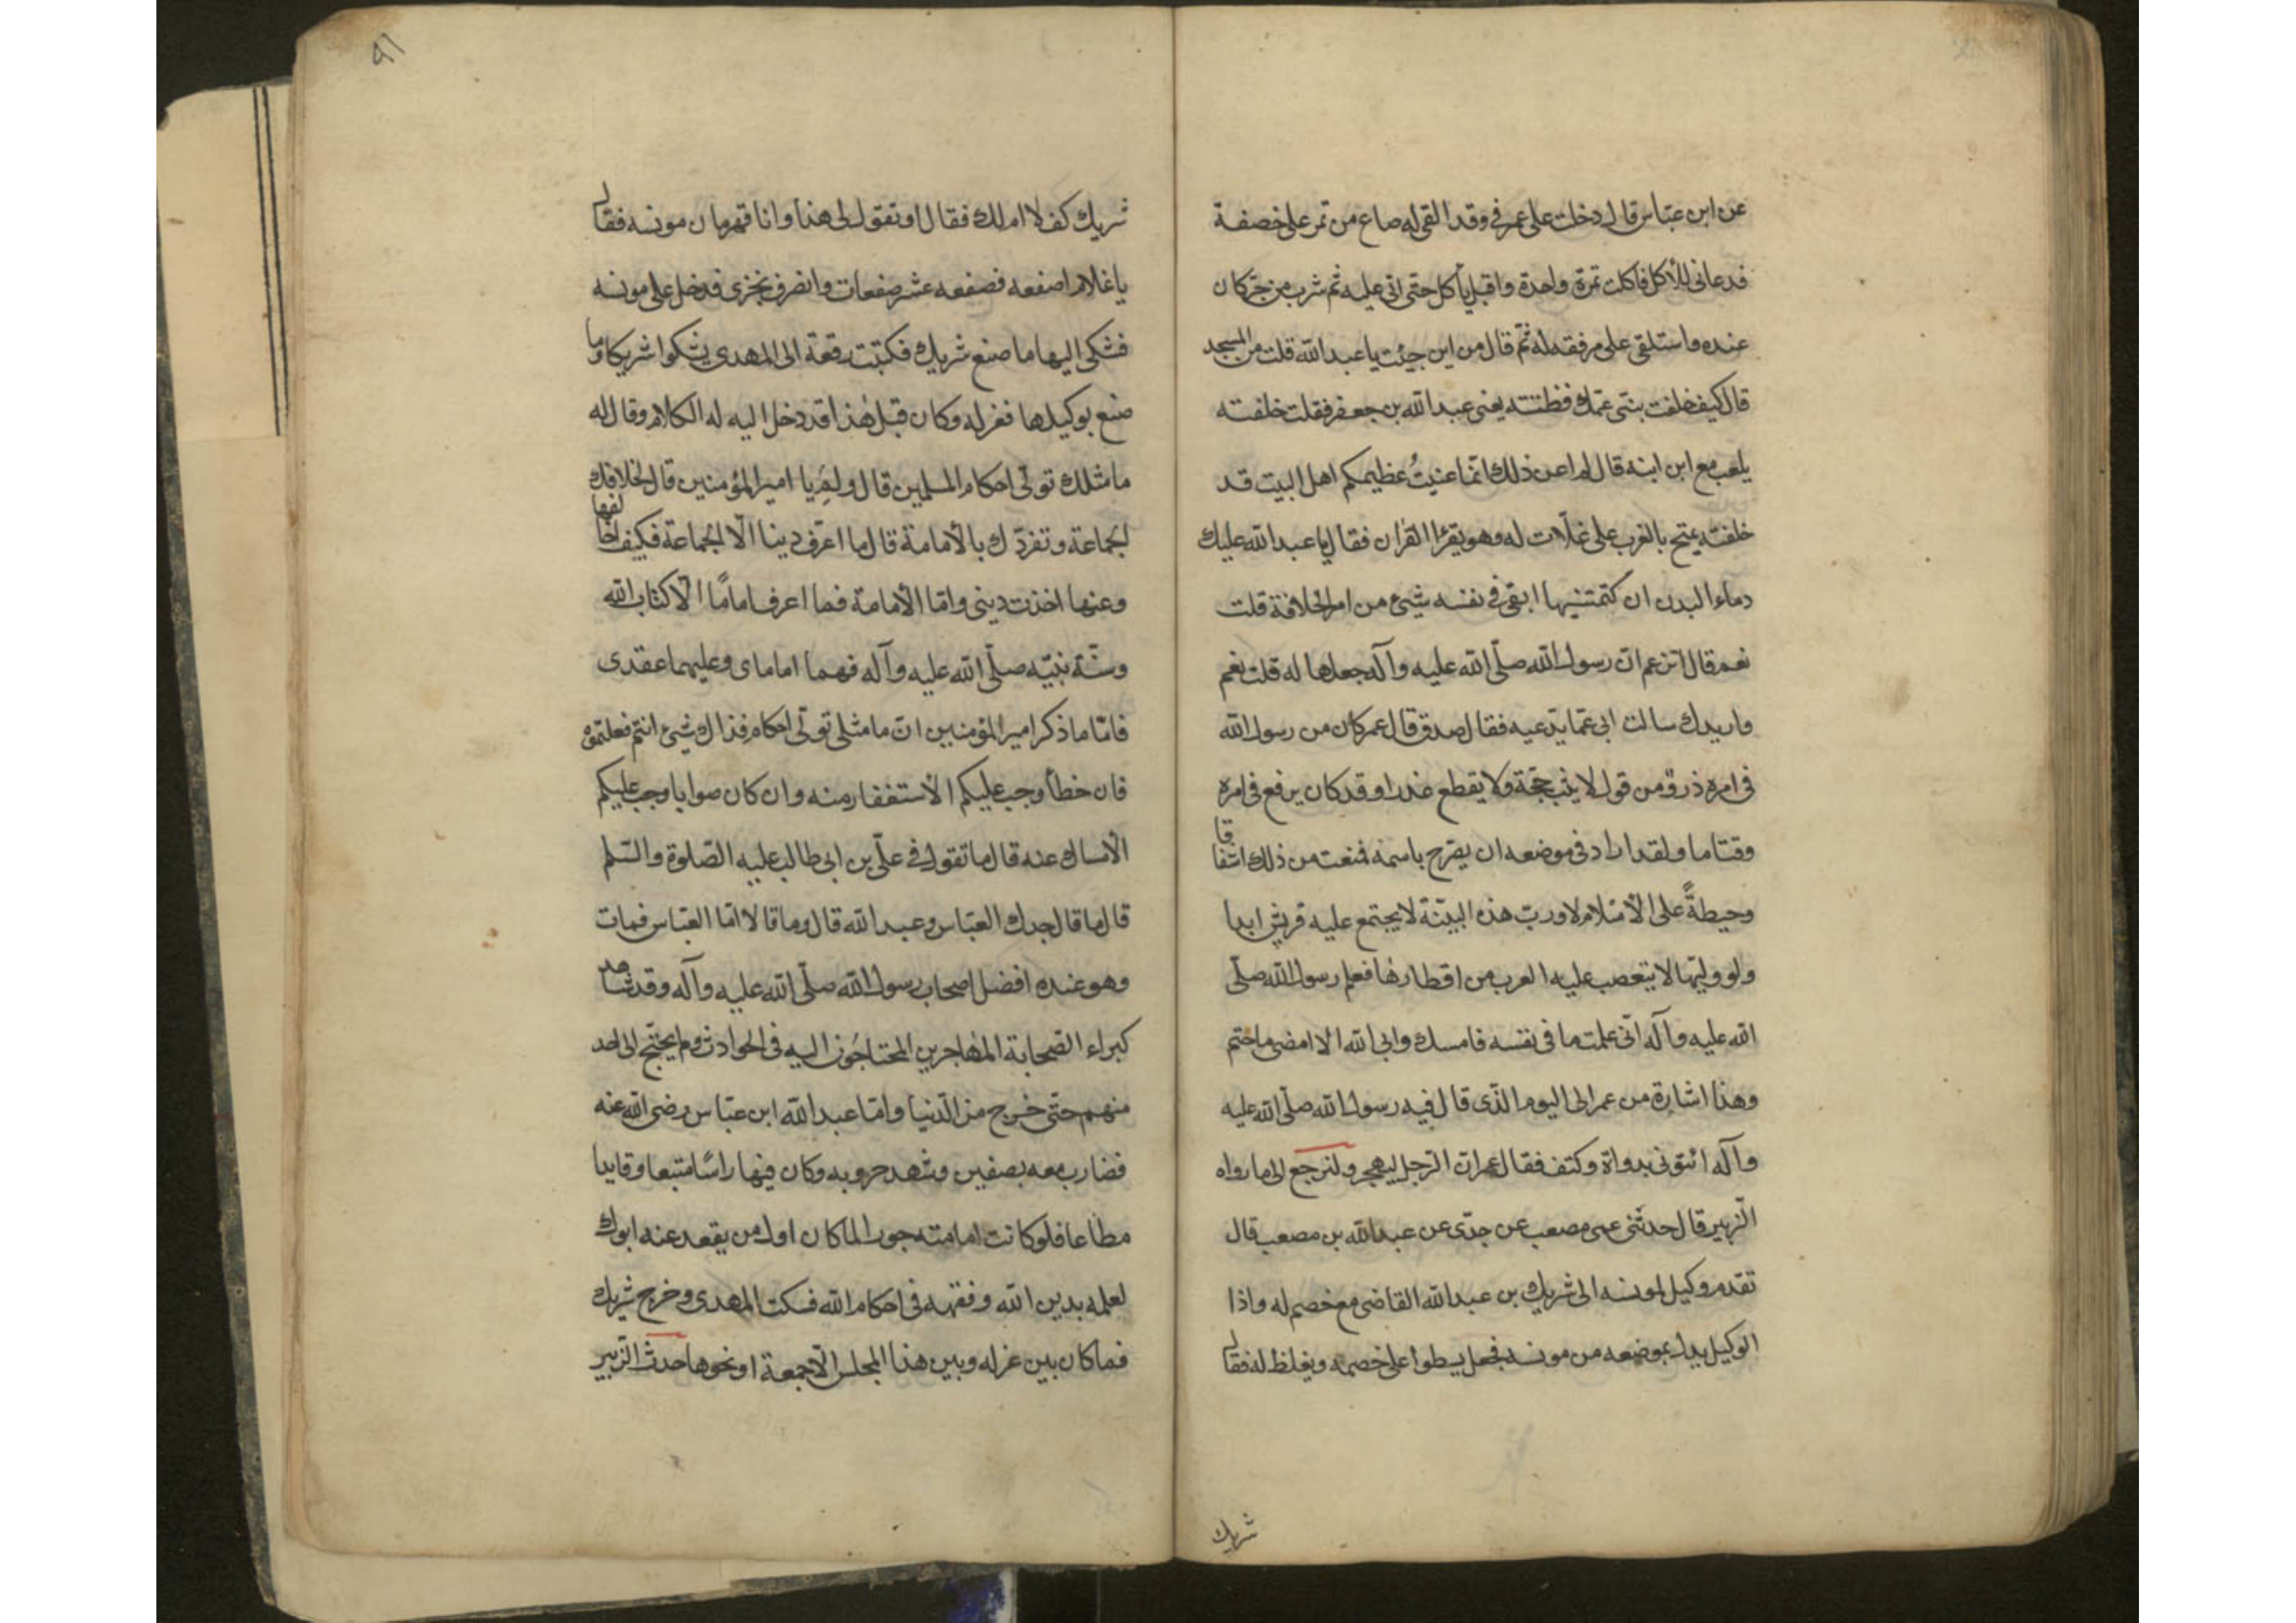 عن ابن عبّاس قال دخلت على عمر في وقد القى له صاع من تمر على خصفة
فدعانى للأكل فاكلت تمرة واحدة واقبل يأكل حتى اتى عليه ثم شرب من جرّ كان
عنده واستلقى على مرفقة له ثمّ قال من اين جيئت يا عبد الله قلت من المسجد
قال كيف خلفت بنى عمّك فظننته يعنى عبد الله بن جعفر فقلت خلفته
يلعب مع ابن ابنه قال لم اعن ذلك انّما عنيتُ عظيمكم اهل البيت قد
خلفته يمتح بالغرب على غلّات له وهو يقرا القران فقال يا عبد الله عليك
دماء البدن ان كتمتنيها ابقى فى نفسه شيئ من امر الخلافة قلت
نعم قال اتزعم انّ رسول الله صلّى الله عليه وآله جعلها له قلت نعم
وازيدك سالت ابى عمّا يدّعيه فقال صدق قال عمر كان من رسول الله
فى امره ذرو من قول لا يثبت حجّة ولا يقطع عذرا وقد كان يرفع فى امره
وقتا ما ولقد اراد فى موضعه ان يصرّح باسمه فمنعت من ذلك اشفاقا
وحيطةً على الأسلام لا وربّ هذه البيّنة لا يجتمع عليه قريش ابدا
ولو وليّها لا يتعصب عليه العرب من اقطارها فعلم رسول الله صلّى
الله عليه وآله انّى علمت ما فى نفسه فامسك وابى الله الا امضى ما ختم
وهذا اشارة من عمر الى اليوم الّذى قال فيه رسول الله صلّى الله عليه
وآله ائتونى بدواة وكتف فقال عمر انّ الرّجل ليهجر ولنرجع الى ما رواه
الزّبير قال حدثنى عمى مصعب عن جدّى عن عبد الله بن مصعب قال
تقدم وكيل لمونسه الى شريك بن عبد الله القاضى مع خصم له واذا
الوكيل يدل بموضعه من مونسه فجعل يسطوا على خصمه ويغلظ له فقال
شريك
٩١
شريك كف لا ام لك فقال او تقول لى هذا وانا قهرمان مونسه فقال
يا غلام اصفعه فصفعه عشر صفعات وانصرف بخزى فدخل على مونسه
فشكى اليها ما صنع شريك فكتبت رقعة الى المهدى يشكوا شريكا وما
صنع بوكيلها فعزله وكان قبل هذا قد دخل اليه له الكلام وقال له
ما مثلك تولّى احكام المسلمين قال ولِمَ يا امير المؤمنين قال لخلافك
الجماعة وتفرّدك بالأمامة قال ما اعرف دينا الّا الجماعة فكيف اخالفها
وعنها اخذت دينى وامّا الأمامة فما اعرف امامًا الّا كتاب الله
وسنّة نبيّه صلّى الله عليه وآله فهما اماماى وعليهما عقدى
فامّا ما ذكر امير المؤمنين انّ ما مثلى تولّى احكام فذاك شيئ انتم فعلتموه
فان خطأ وجب عليكم الأستغفار منه وان كان صوابا وجب عليكم
الأمساك عنه قال ما تقول في علّى بن ابى طالب عليه الصّلوة والسّلم
قال ما قال جدك العبّاس وعبد الله قال وما قالا امّا العبّاس فمات
وهو عنده افضل اصحاب رسول الله صلّى الله عليه وآله وقد شاهد
كبراء الصّحابة المهاجرين المحتاجُون اليه فى الحوادث ولم يحتّج الى احد
منهم حتّى خرج من الدّنيا وامّا عبد الله ابن عبّاس رضى الله عنه
فضارب معه بصفين وشهد حروبه وكان فيها راسًا متبعا وقايدا
مطاعا فلو كانت امامته جورا لما كان اول من يقعد عنه ابوك
لعلمه بدين الله وفقهه فى احكام الله فسكت المهدى وخرج شريك
فما كان بين عزله وبين هذا المجلس الّا جمعة او نحوها حدث الزّبير